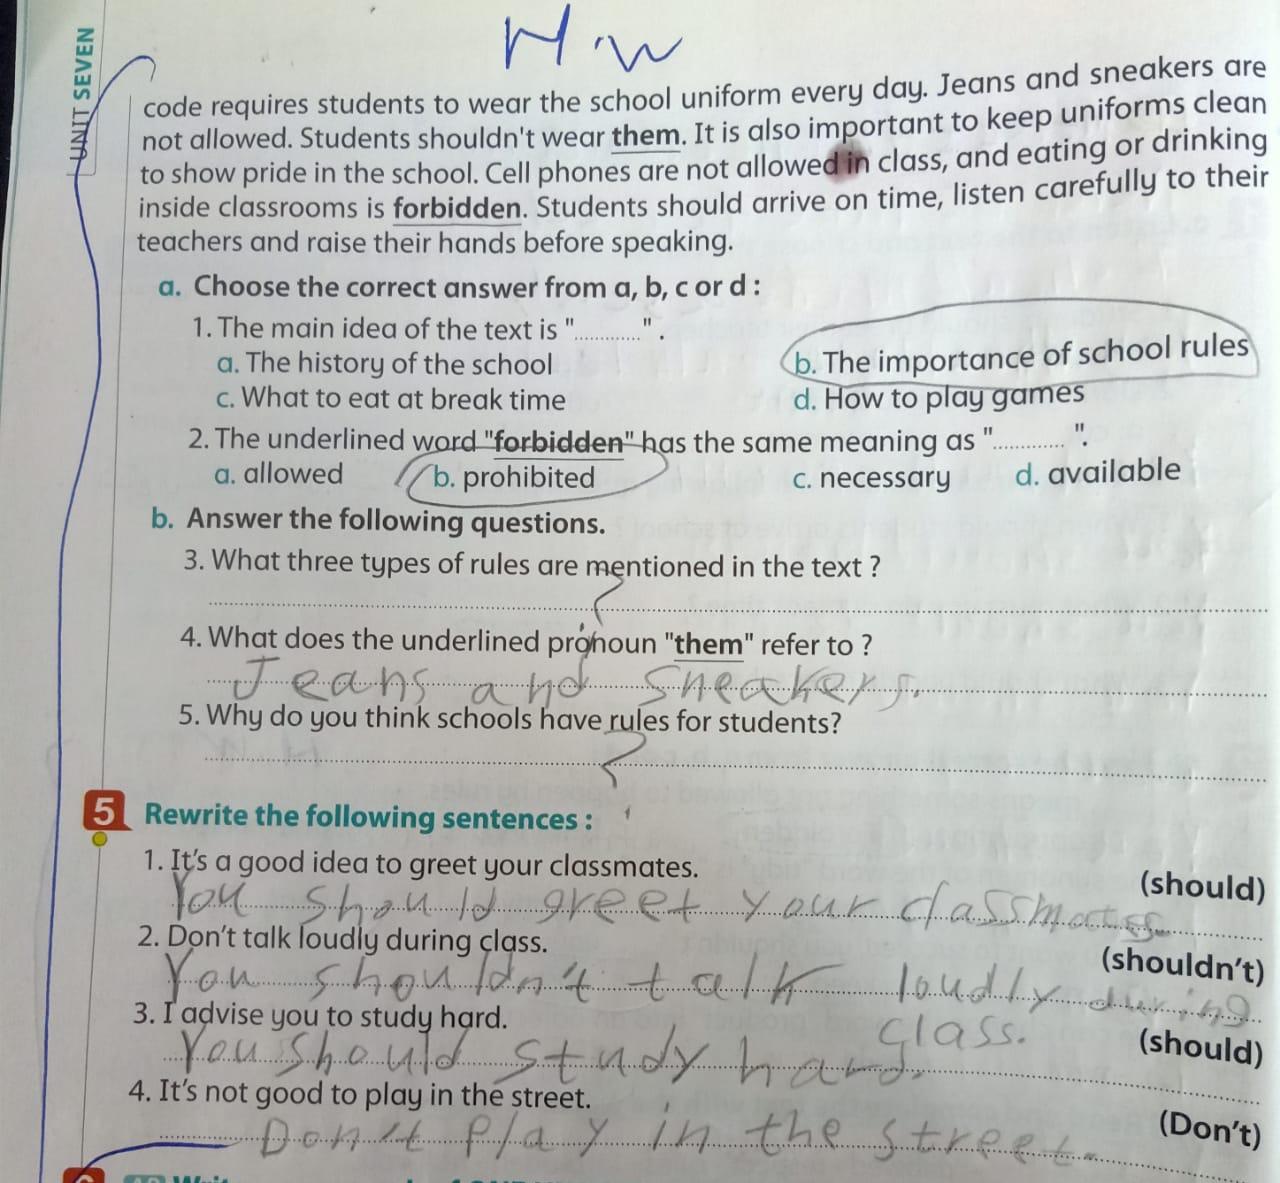 H.w
UNIT SEVEN
code requires students to wear the school uniform every day. Jeans and sneakers are
not allowed. Students shouldn't wear them. It is also important to keep uniforms clean
to show pride in the school. Cell phones are not allowed in class, and eating or drinking
inside classrooms is forbidden. Students should arrive on time, listen carefully to their
teachers and raise their hands before speaking.
a. Choose the correct answer from a, b, c or d :
1. The main idea of the text is "............".
a. The history of the school b. The importance of school rules
c. What to eat at break time d. How to play games
2. The underlined word "forbidden" has the same meaning as "............".
a. allowed b. prohibited c. necessary d. available
b. Answer the following questions.
3. What three types of rules are mentioned in the text ?
?
4. What does the underlined pronoun "them" refer to ?
Jeans and sneakers.
5. Why do you think schools have rules for students?
?
5 Rewrite the following sentences :
1. It's a good idea to greet your classmates. (should)
You should greet your classmates.
2. Don't talk loudly during class. (shouldn't)
You shouldn't talk loudly during
class.
3. I advise you to study hard. (should)
You should study hard.
4. It's not good to play in the street. (Don't)
Don't play in the street.